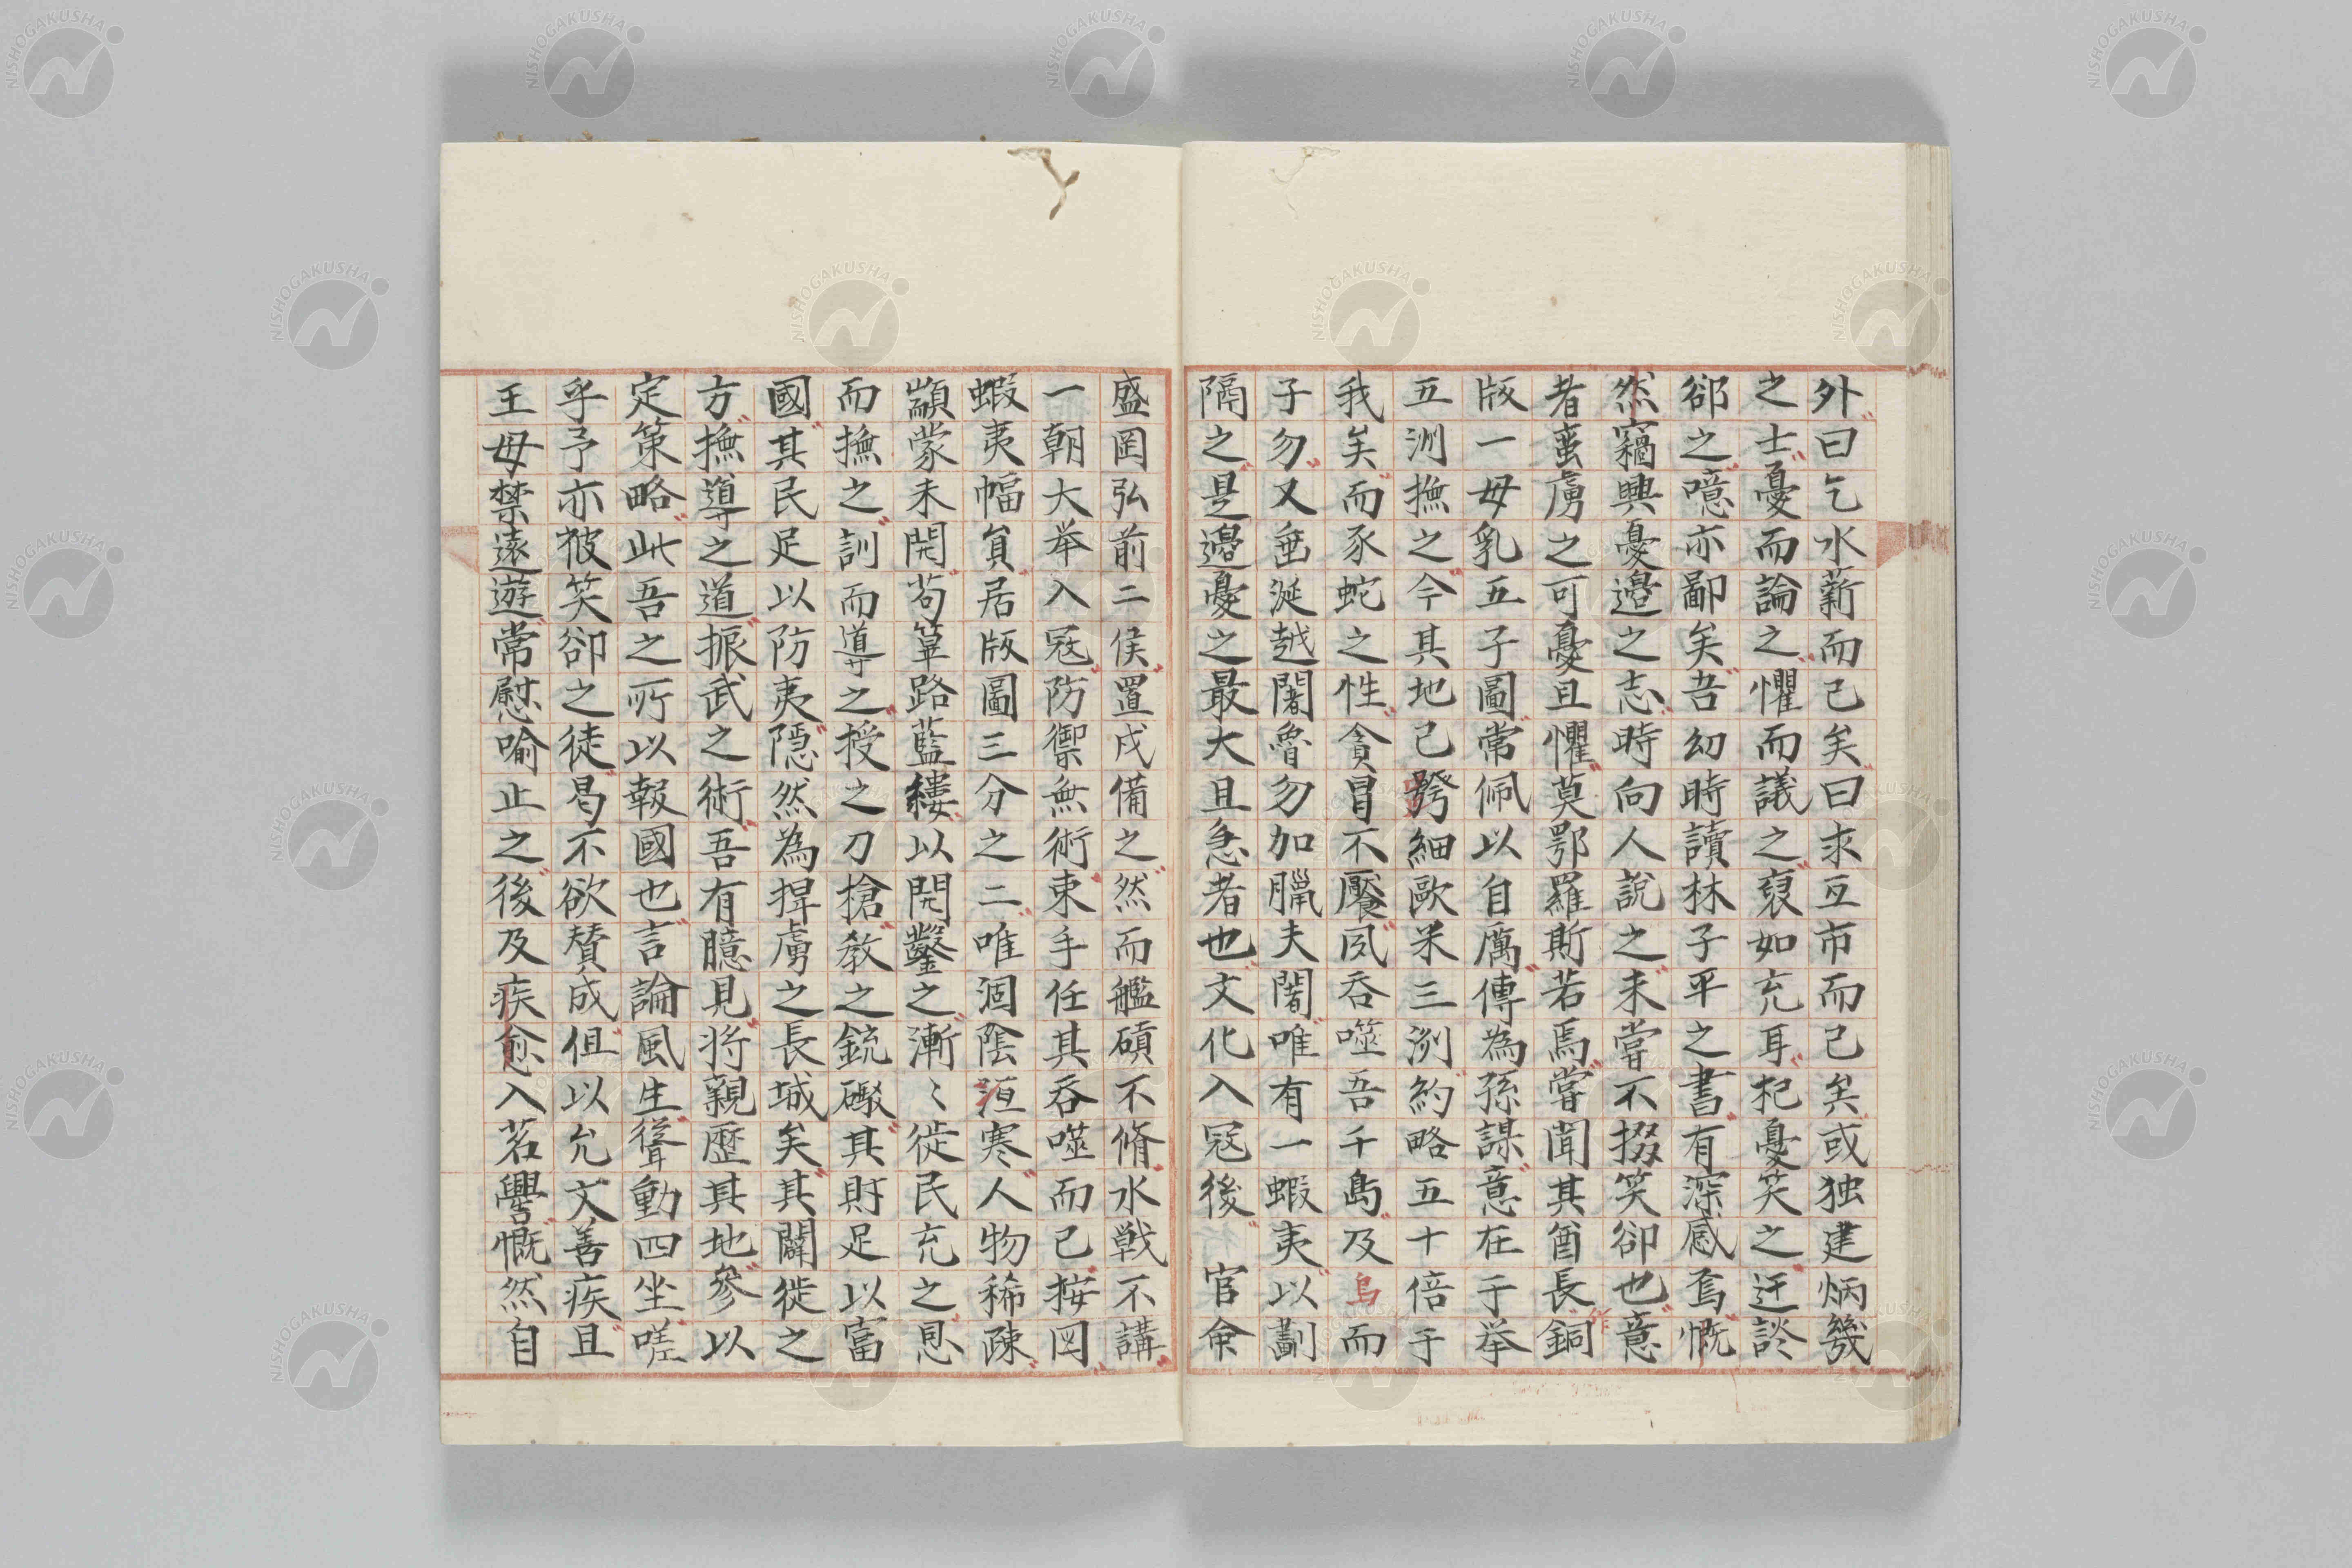 外曰乞水薪而已矣曰求互市而已矣或独建炳幾
之士憂而論之懼而議之裒如充耳杞憂笑之迂談
郤之噫亦鄙矣吾幼時讀林子平之書有深感焉慨
然竊興憂邉之志時向人說之未嘗不掇笑卻也意
者蛮虜之可憂且懼莫鄂羅斯若焉嘗聞其酋長銅
版一母乳五子圖常佩以自厲傳為孫謀意在于挙
五洲撫之今其地已㢡細歐米三洌約略五十倍于
我矣而豕蛇之性貪冒不饜夙呑噬吾千島及烏而
子勿又垂涎越闍魯勿加臘夫闍唯有一蝦夷以劃
隔之是邉憂之最大且急者也文化入冦後官命
盛岡弘前二侯置戍備之然而艦碩不脩水戦不講
一朝大挙入冦防禦無術束手任其呑噬而已按図
蝦夷幅員居版圖三分之二唯涸陰沍寒人物稀疎
顓蒙未開苟篳路藍縷以開鑿之漸〻徙民充之恩
而撫之訓而導之授之刀搶教之銃礟其財足以富
國其民足以防夷隠然為捍虜之長城矣其闢徙之
方撫導之道振武之術吾有臆見将親歴其地參以
定策略此吾之所以報國也言論風生聳動四坐嗟
乎予亦被笑卻之徒曷不欲賛成但以允文善疾且
王母禁遠遊常慰喻止之後及疾愈入茗黌慨然自